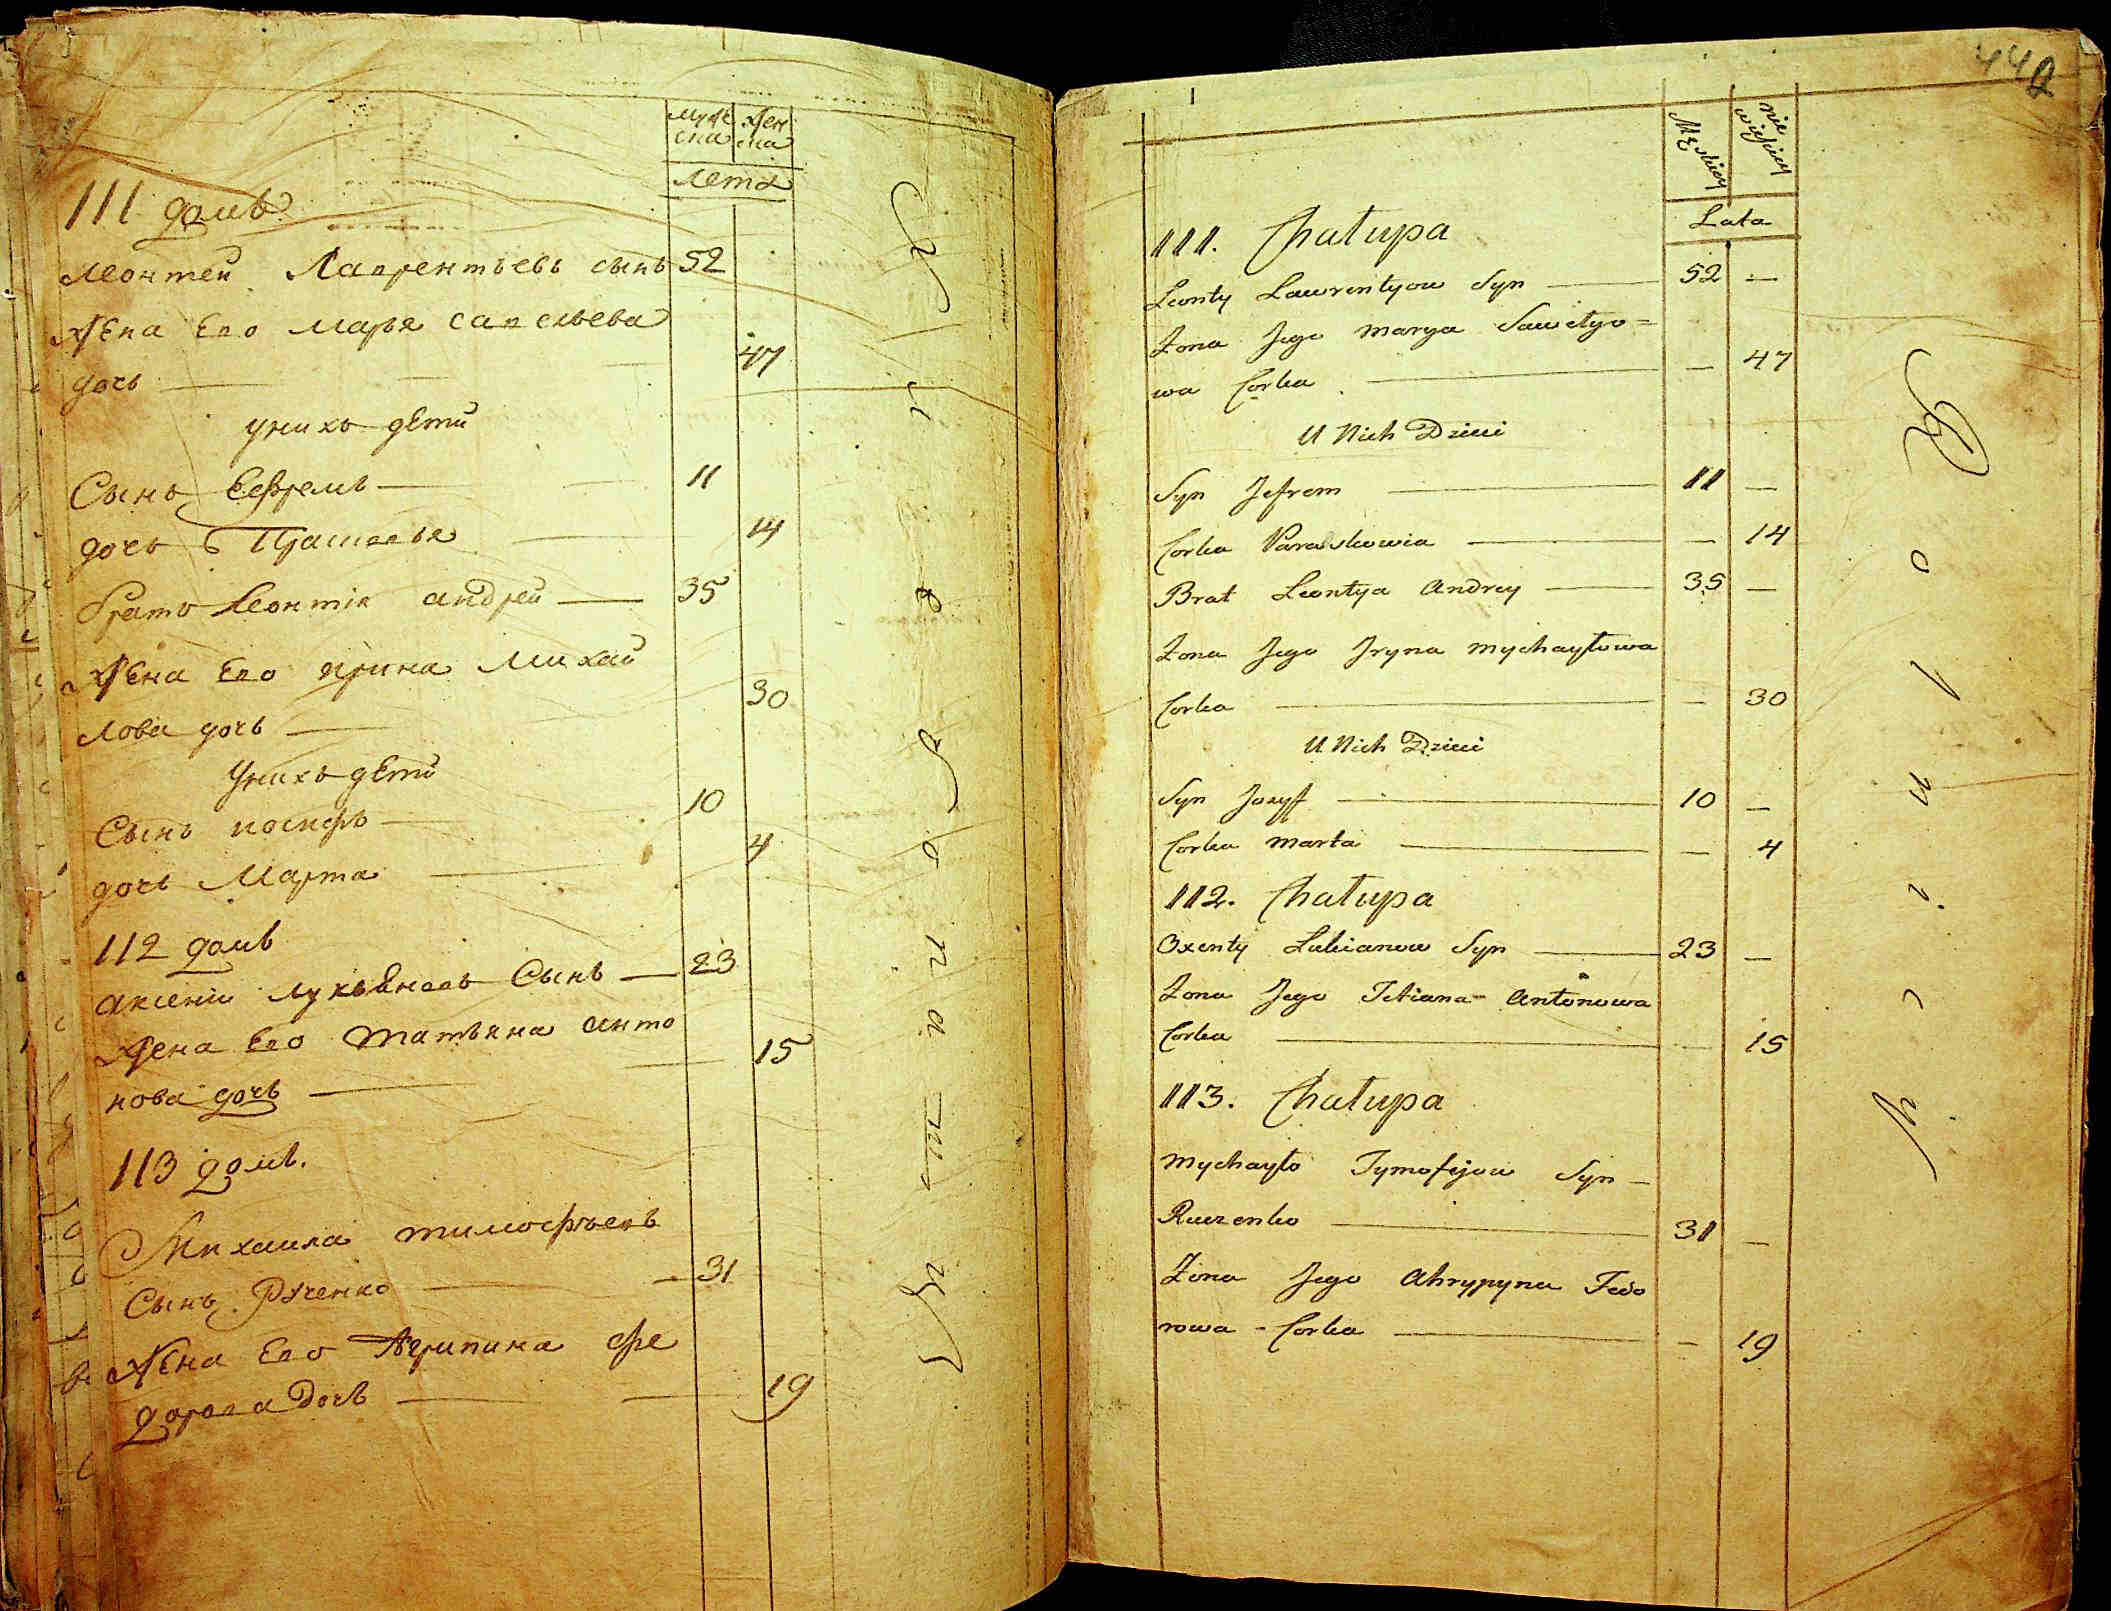 муже ска
жен ска
лета
111 домъ
Леонтей Лаврентьевъ сынъ 52
Жена Его Марья Савельева
дочь 47
унихъ дЕти
Сынъ Еефремъ 11
дочь Прасковья 14
братъ Леонтія андрей 35
ЖЕна Его ирина Михай
лова дочь 30
Унихъ дЕти
Сынъ иосифъ 10
дочь Марта 4
112 домъ
аксений лукьяновъ Сынъ 23
Жена Его татьяна анто
нова дочь 15
113 домъ.
Михаила тимофѣевъ
Сынъ Рученко 31
ЖЕна Его Агрипина фе
дорова Дочь 19
442
Męskiey
niewieściey
Lata
111. Chałupa
Leonty Lawrentyow Syn 52 —
Żona Jego Marya Sawelyo=
wa Corka — 47
U Nich Dzieci
Syn Jefrem 11 —
Corka Paraskowia — 14
Brat Leontya Andrey 35 —
Żona Jego Jryna Mychayłowa
Corka — 30
U Nich Dzieci
Syn Jozyf 10 —
Corka Marta — 4
112. Chałupa
Oxenty Lukianow Syn 23 —
Żona Jego Tetiana Antonowa
Corka 15
113. Chałupa
Mychayło Tymofejow Syn —
Ruczenko 31 —
Żona Jego Ahrypyna Fedo
rowa - Corka — 19
Rolnicy